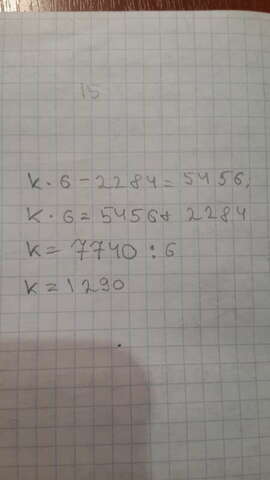 15
k · 6 - 2284 = 5456,
k · 6 = 5456 + 2284
k = 7740 : 6
k = 1290